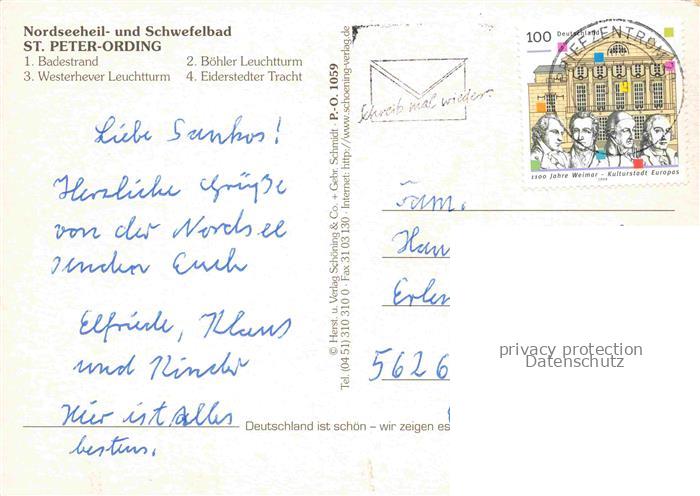 Nordseeheil- und Schwefelbad
ST. PETER-ORDING
1. Badestrand 2. Böhler Leuchtturm
3. Westerhever Leuchtturm 4. Eiderstedter Tracht
Liebe Sankos!
Herzliche Grüße
von der Nordsee
senden Euch
Elfriede, Klaus
und Kinder
Hier ist alles
bestens.
Deutschland ist schön – wir zeigen es
© Herst. u. Verlag Schöning & Co. + Gebr. Schmidt · P.-O. 1059
Tel. (04 51) 310 310 0 · Fax 31 03 130 · Internet: http://www.schoening-verlag.de
Schreib mal wieder.
100 Deutschland
BRIEFZENTRUM
1100 Jahre Weimar - Kulturstadt Europas
1999
Fam.
Han
Erlen
5626
privacy protection
Datenschutz